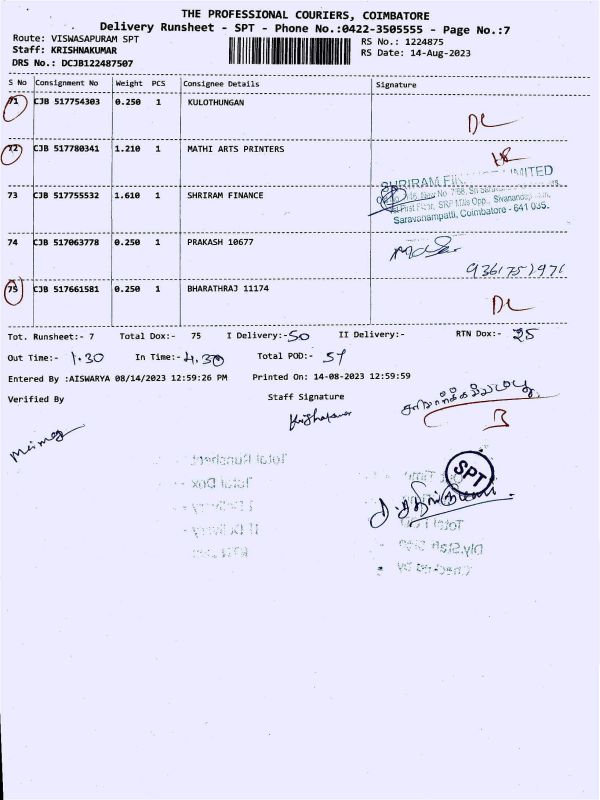 THE PROFESSIONAL COURIERS, COIMBATORE
Delivery Runsheet - SPT - Phone No.:0422-3505555 - Page No.:7
Route: VISWASAPURAM SPT
RS No.: 1224875
Staff: KRISHNAKUMAR
RS Date: 14-Aug-2023
DRS No.: DCJB122487507
S No Consignment No Weight PCS Consignee Details Signature
71 CJB 517754303 0.250 1 KULOTHUNGAN
DL
72 CJB 517780341 1.210 1 MATHI ARTS PRINTERS
SHRIRAM LIMITED
73 CJB 517755532 1.610 1 SHRIRAM FINANCE
SRP Mills Opp.,
Saravanampatti, Coimbatore - 641 035.
74 CJB 517063778 0.250 1 PRAKASH 10677
9361751971
75 CJB 517661581 0.250 1 BHARATHRAJ 11174
DL
Tot. Runsheet:- 7 Total Dox:- 75 I Delivery:- 50 II Delivery:- RTN Dox:- 25
Out Time:- 1.30 In Time:- 4.30 Total POD:-
Entered By :AISWARYA 08/14/2023 12:59:26 PM Printed On: 14-08-2023 12:59:59
Verified By Staff Signature
SPT
Total Runsheet
Total Dox
I Delivery
II Delivery